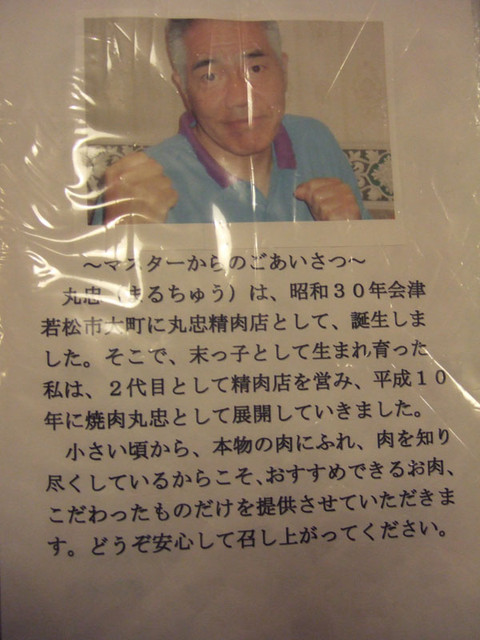 ～マスターからのごあいさつ～
丸忠（まるちゅう）は、昭和３０年会津
若松市大町に丸忠精肉店として、誕生しま
した。そこで、末っ子として生まれ育った
私は、２代目として精肉店を営み、平成１０
年に焼肉丸忠として展開していきました。
小さい頃から、本物の肉にふれ、肉を知り
尽くしているからこそ、おすすめできるお肉、
こだわったものだけを提供させていただきま
す。どうぞ安心して召し上がってください。